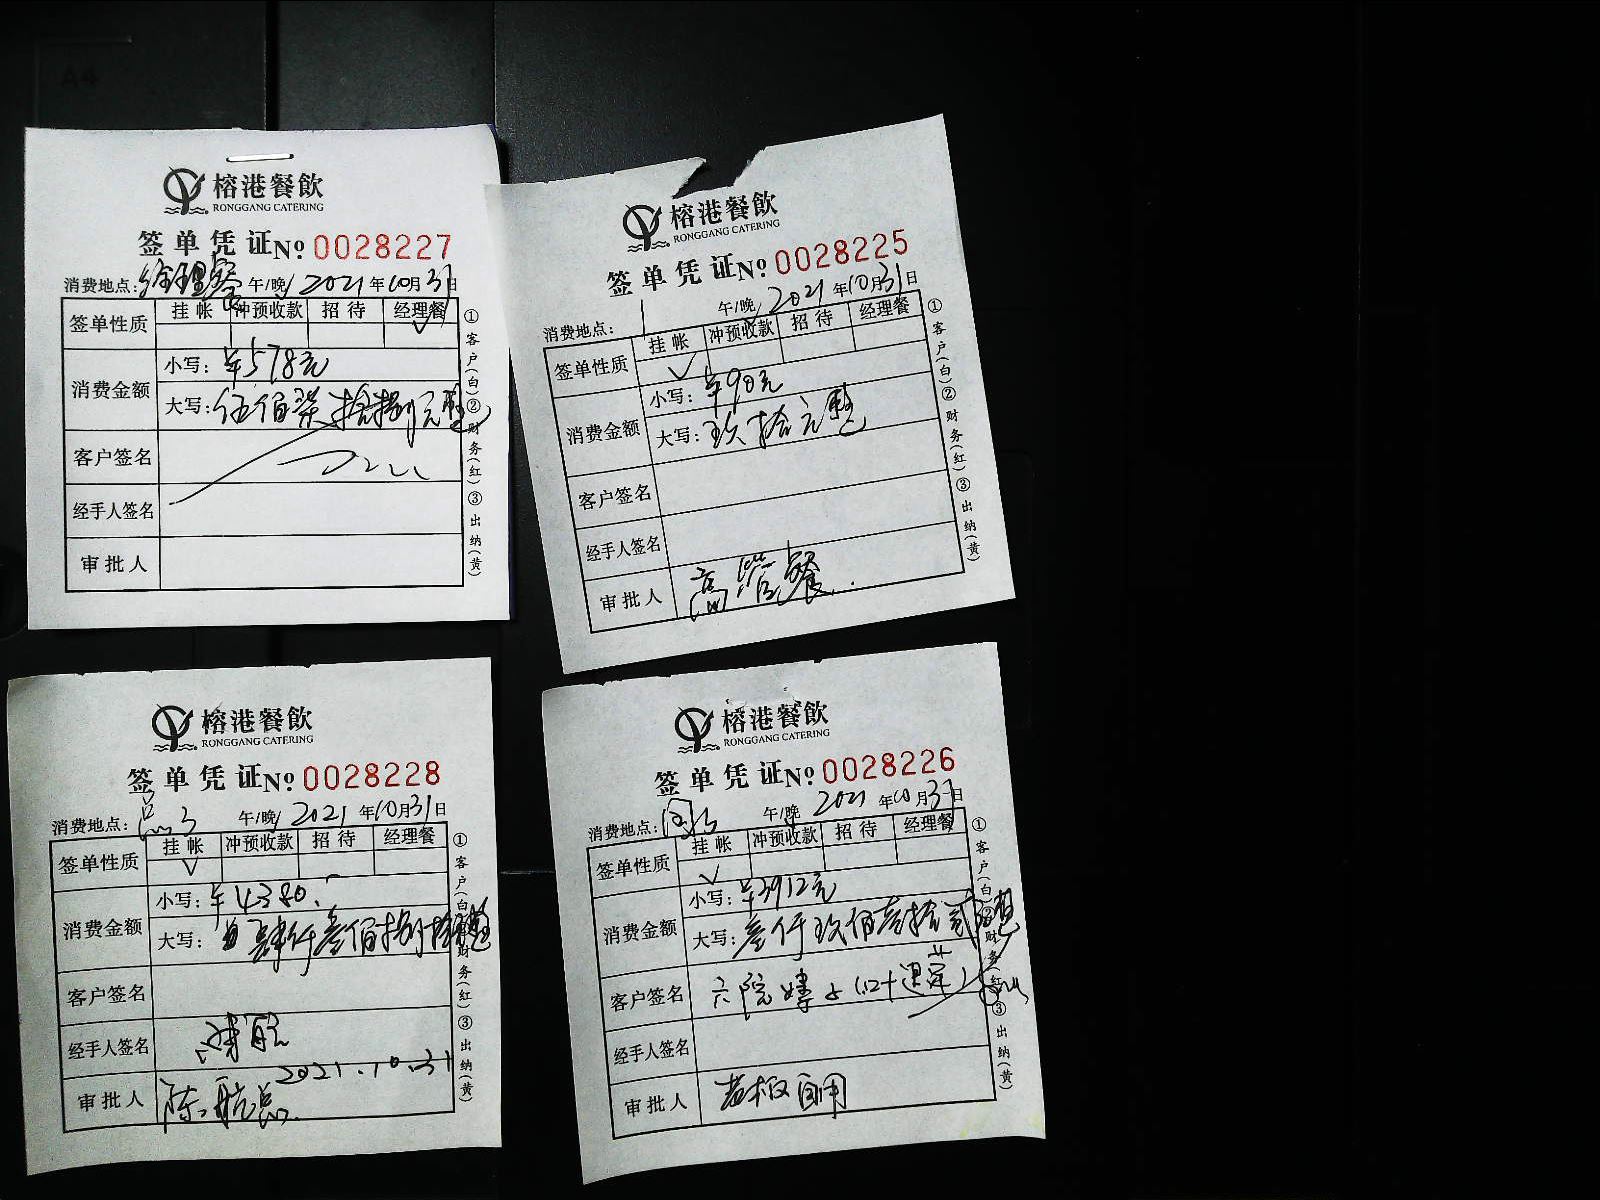 A4
榕港餐飲
RONGGANG CATERING
签单凭证 № 0028227
消费地点: 经理餐 午/晚 2021年10月31日
签单性质 挂帐 冲预收款 招待 经理餐 √
消费金额 小写: ¥578元
大写: 伍佰柒拾捌元整
客户签名
经手人签名
审批人
①客户(白)②财务(红)③出纳(黄)
榕港餐飲
RONGGANG CATERING
签单凭证 № 0028225
消费地点: 午/晚 2021年10月31日
签单性质 挂帐 √ 冲预收款 招待 经理餐
消费金额 小写: ¥90元
大写: 玖拾元整
客户签名
经手人签名
审批人 高管餐
①客户(白)②财务(红)③出纳(黄)
榕港餐飲
RONGGANG CATERING
签单凭证 № 0028228
消费地点: 午/晚 2021年10月31日
签单性质 挂帐 √ 冲预收款 招待 经理餐
消费金额 小写: ¥4380.
大写: 肆仟叁佰捌拾元整
客户签名
经手人签名
2021.10.31
审批人 陈航总
①客户(白)②财务(红)③出纳(黄)
榕港餐飲
RONGGANG CATERING
签单凭证 № 0028226
消费地点: 午/晚 2021年10月31日
签单性质 挂帐 √ 冲预收款 招待 经理餐
消费金额 小写: ¥3912元
大写: 叁仟玖佰壹拾贰元整
客户签名
经手人签名
审批人 老板自用
①客户(白)②财务(红)③出纳(黄)